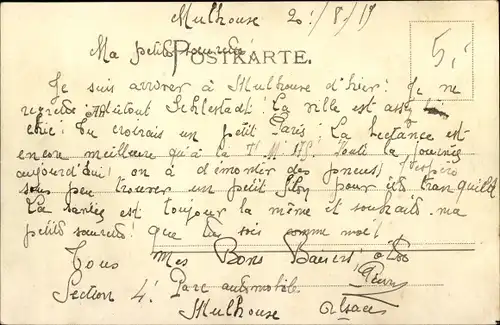 Mulhouse 20/8/19
5,
Ma petite soeurette
POSTKARTE.
Je suis arriver à Mulhouse d'hier! Je ne
regrette surtout Schlestadt! La ville est assez
chic! Tu croirais un petit Paris; La bectance est
encore meilleure qu'à la Toute la journée
aujourd'hui on à démonter des pneus, j'espère
sous peu trouver un petit filon pour être tranquille
La santée est toujour la même et souhaite ma
petite soeurette que tu sois comme moi!
Tous Mes Bons Baisers à toi
Section 4. Parc automobile
Mulhouse Alsace